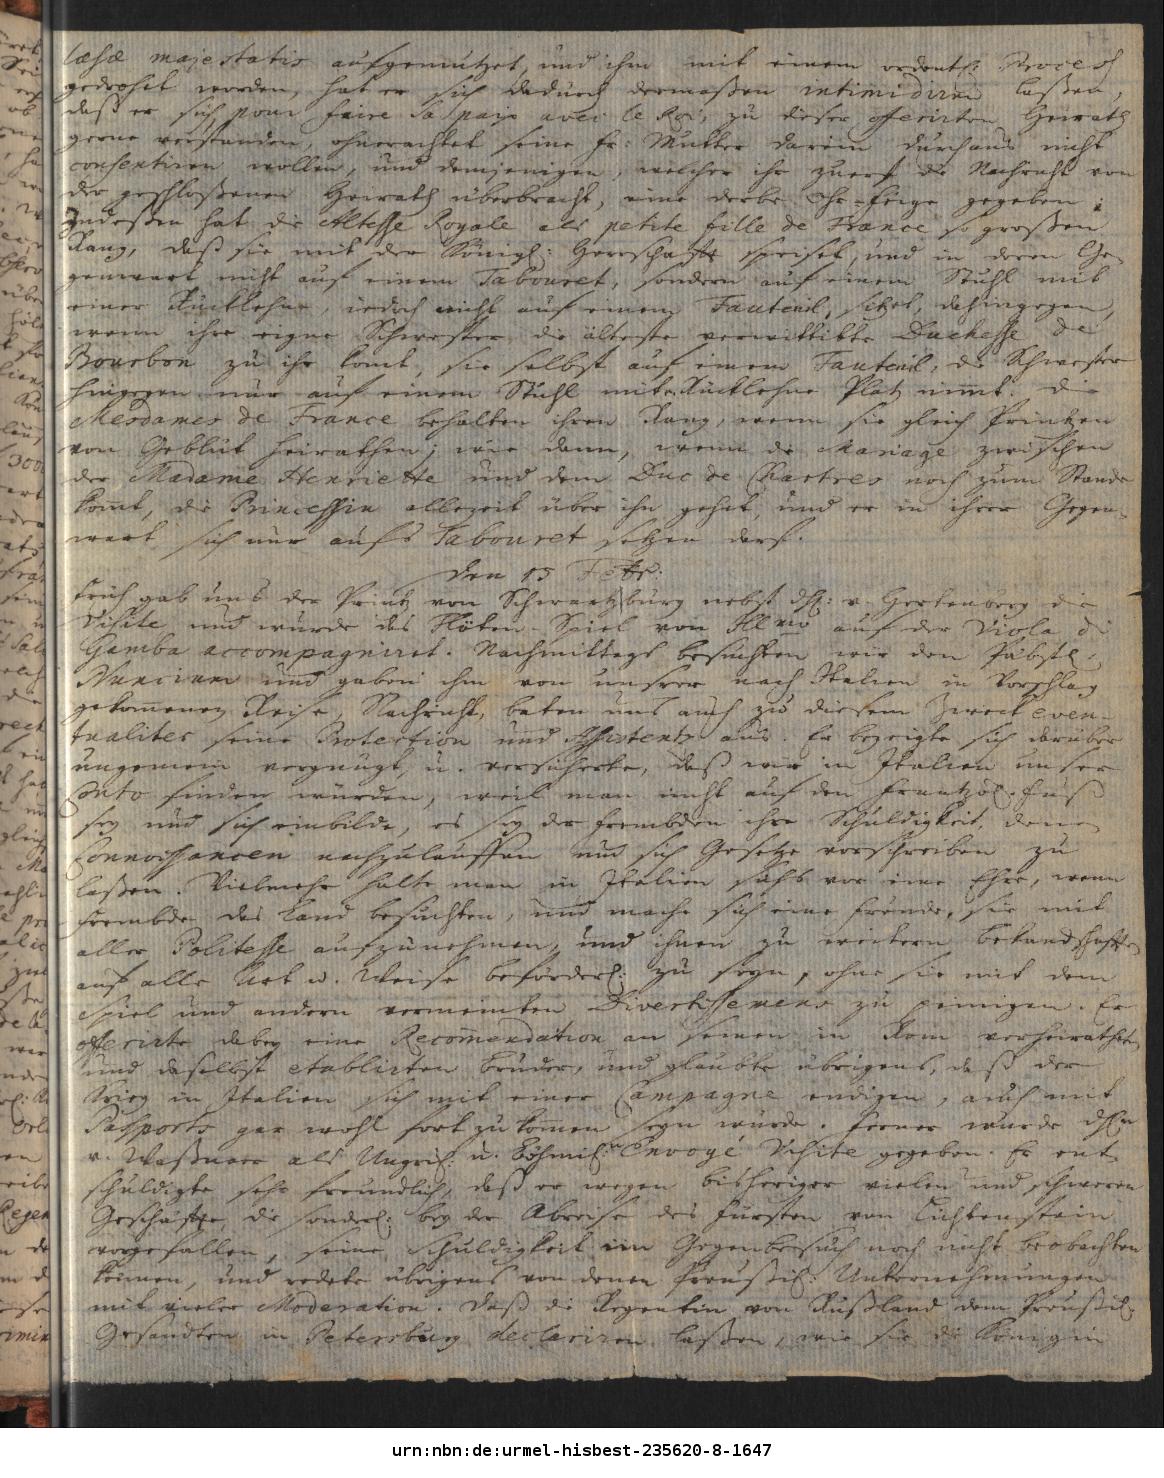 læsæ majestatis aufgemutzet, und ihm mit einem ordentl: Proceß
gedrohet worden, hat er sich dadurch dermaßen intimidiren laßen,
daß er sich, pour faire sa paix avec le Roi, zu dieser offerirten Heirath
gerne verstanden, ohnerachtet seine Fr: Mutter darein durchaus nicht
consentiren wollen, und demjenigen, welcher ihr zuerst die Nachricht von
der geschloßenen Heirath überbracht, eine derbe Ohr-feige gegeben;
Indeßen hat die Altesse Royale als petite fille de France so großen
Rang, daß sie mit der Königl: Herrschafft speiset, und in deren Ge-
genwart nicht auf einem Tabouret, sondern auf einem Stuhl mit
einer Rücklehne, jedoch nicht auf einem Fauteuil, sitzet, dahingegen,
wenn ihre eigne Schwester die älteste verwittibte Duchesse de
Bourbon zu ihr komt, sie selbst auf einem Fauteuil, die Schwester
hingegen nur auf einem Stuhl mit Rücklehne Platz nimt. Die
Mesdames de France behalten ihren Rang, wenn sie gleich Printzen
von Geblüt heirathen; wie dann, wenn die Mariage zwischen
der Madame Henriette und dem Duc de Chartres noch zum Stande
komt, die Princessin allezeit über ihn gehet, und er in ihrer Gegen-
wart sich nur aufs Tabouret setzen darf.
Den 15 Febr:
Früh gab uns der Printz von Schwartzburg nebst dH: v. Hertenberg die
Visite und wurde das Flöten-Spiel von Illmo auf der Viola di
Gamba accompagniret. Nachmittags besuchten wir den Päbstl:
Nuncium und gaben ihm von unsrer nach Italien in Vorschlag
gekomenen Reise, Nachricht, baten uns auch zu diesem Zweck even-
tualiter seine Protection und Assistentz aus. Er bezeigte sich darüber
ungemein vergnügt, u. versicherte, daß wir in Italien unser
Conto finden würden, weil man nicht auf den Frantzös. Fuß
sey und sich einbilde, es sey der Frembden ihre Schuldigkeit, denen
Connoissancen nachzulauffen und sich Gesetze vorschreiben zu
laßen. Vielmehr halte man in Italien sichs vor eine Ehre, wenn
Frembde das Land besuchten, und mache sich eine Freude, sie mit
aller Politesse aufzunehmen, und ihnen zu weitern bekandschafften
auf alle Art u. Weise beförderl: zu seyn, ohne sie mit dem
Spiel und andern vermeinten Divertissemens zu peinigen. Er
offerirte dabey eine Recommendation an seinen in Rom verheiratheten
und daselbst etablirten Bruder, und glaubte übrigens, daß der
Krieg in Italien sich mit einer Campagne endigen, auch mit
Passports gar wohl fort zu komen seyn würde. Ferner wurde dHn
v. Waßnaer als Ungris: u. Böhmis: Envoyé Visite gegeben. Er ent-
schuldigte sehr freundlich, daß er wegen bisheriger vielen und schweren
Geschäffte, die sonderl: bey der Abreise des Fürsten von Lichtenstein
vorgefallen, seine Schuldigkeit im Gegenbesuch noch nicht beobachten
können, und redete übrigens von denen Preußis: Unternehmungen
mit vieler Moderation. Daß die Regentin von Rußland dem Preußis:
Gesandten in Petersburg declariren laßen, wie sie die Königin
urn:nbn:de:urmel-hisbest-235620-8-1647